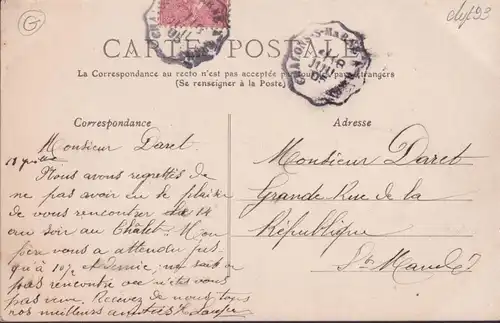 clyt93
CHALONS-S-MARNE
JUIL
05
CARTE POSTALE
La Correspondance au recto n'est pas acceptée par tous les pays étrangers
(Se renseigner à la Poste)
Correspondance
Adresse
Monsieur Daret
Nous avous regrettés de
ne pas avoir eu le plaisir
de vous rencontrer le 14
au soir au Châlet. Mon
père vous a attendu jus
qu'à 10h et demie; ne sait
pas rencontré ou n'êtes vous
pas venu. Recevez de nous tous
nos meilleurs amitiés
Monsieur Daret
Grande Rue de la
République
St Mandé